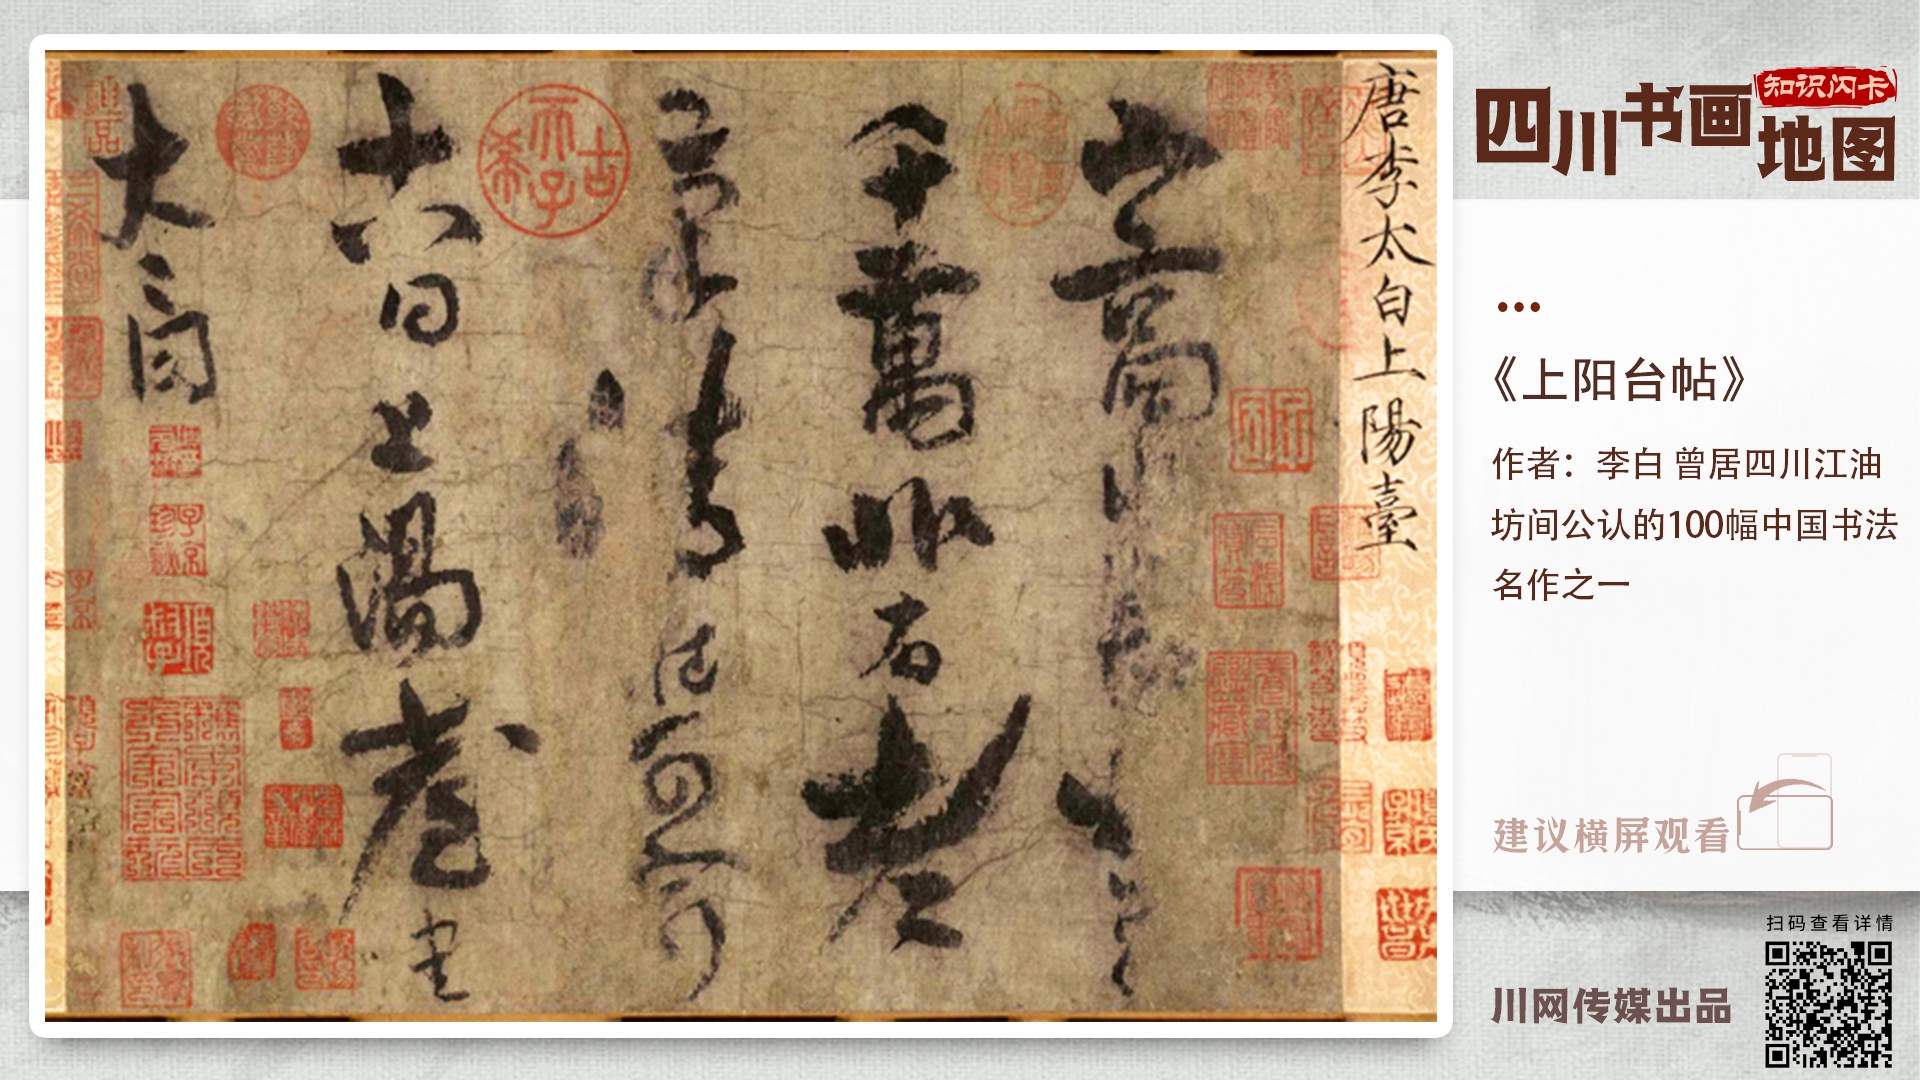 四川书画地图
知识闪卡
唐李太白上陽臺
山高水長物象
千萬非有老筆
清壯何窮
十八日上陽臺書
太白
古希天子
《上阳台帖》
作者：李白 曾居四川江油
坊间公认的100幅中国书法
名作之一
建议横屏观看
扫码查看详情
川网传媒出品